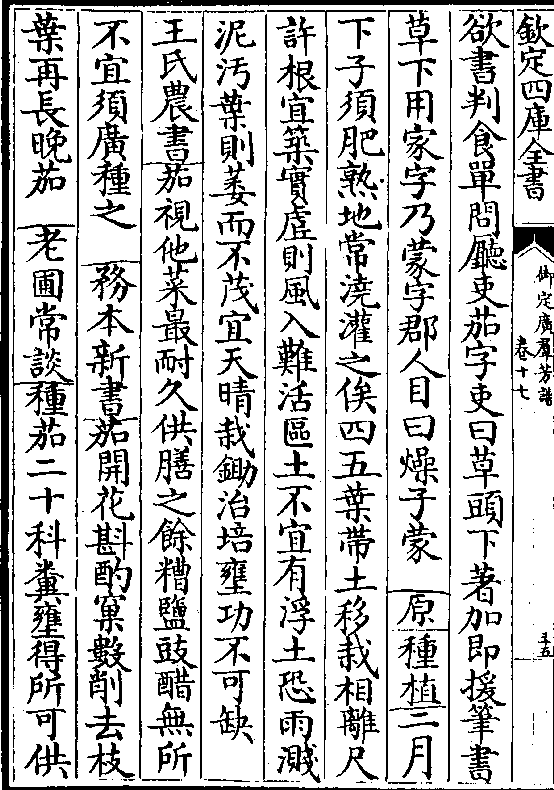 欽定四庫全書
御定廣羣芳譜
卷十七
五
欲書判食單問廳吏茄字吏曰草頭下著加即援筆書
草下用家字乃蒙字郡人目曰燥子蒙 原種植二月
下子須肥熟地常澆灌之俟四五葉帶土移栽相離尺
許根宜築實虛則風入難活區土不宜有浮土恐雨濺
泥汚葉則萎而不茂宜天晴栽鋤治培壅功不可缺
王氏農書茄視他菜最耐久供膳之餘糟鹽豉醋無所
不宜須廣種之 務本新書茄開花斟酌窠數削去枝
葉再長晚茄 老圃常談種茄二十科糞壅得所可供